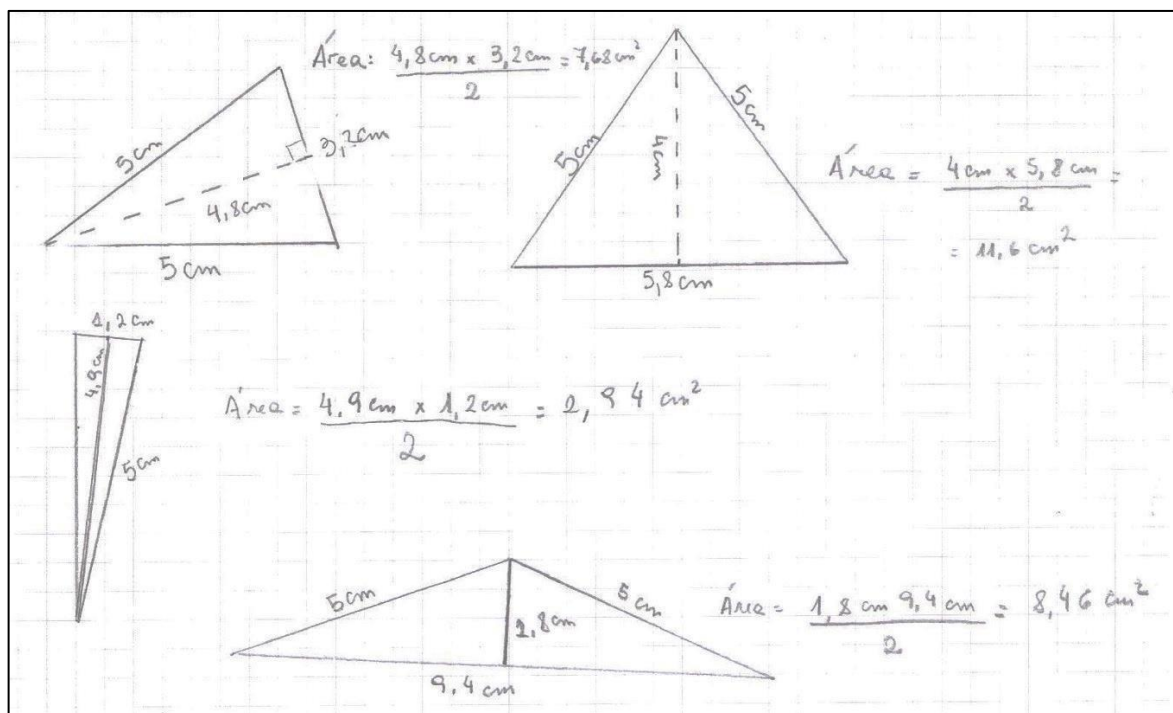 Área: 4,8cm x 3,2cm = 7,68cm²
2
5cm
3,2cm
4,8cm
5cm
5cm
5cm
4cm
5,8cm
Área = 4cm x 5,8cm =
2
= 11,6 cm²
1,2cm
4,9cm
5cm
Área = 4,9cm x 1,2cm = 2,94 cm²
2
5cm
5cm
1,8cm
9,4cm
Área = 1,8cm 9,4cm = 8,46 cm²
2